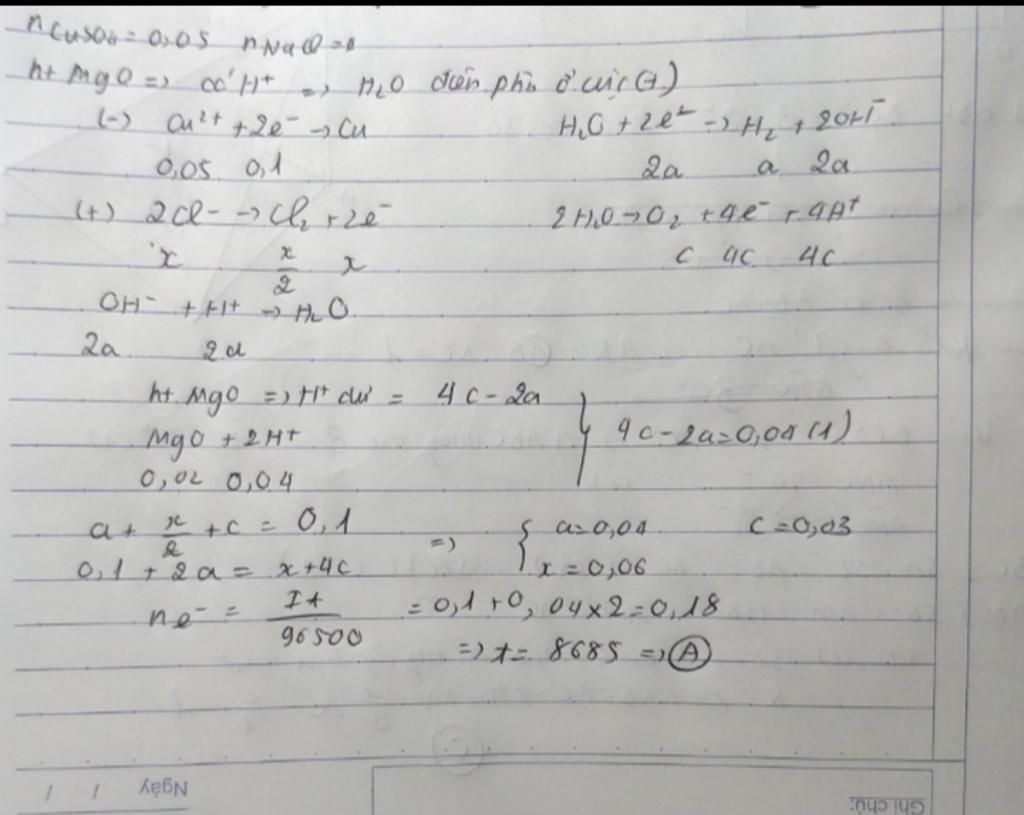 nCuSO4 = 0,05 nNaCl = a
ht MgO => có H+ => H2O điện phân ở cực (+)
(-) Cu²⁺ + 2e⁻ → Cu H2O + 2e⁻ → H2 + 2OH⁻
0,05 0,1 2a a 2a
(+) 2Cl⁻ → Cl2 + 2e⁻ 2H2O → O2 + 4e⁻ + 4H⁺
x x/2 x c 4c 4c
OH⁻ + H⁺ → H2O
2a 2a
ht MgO => H⁺ dư = 4c - 2a
MgO + 2H⁺ } 4c - 2a = 0,04 (1)
0,02 0,04
a + x/2 + c = 0,1 => { a = 0,04 c = 0,03
0,1 + 2a = x + 4c x = 0,06
ne⁻ = It/96500 = 0,1 + 0,04 x 2 = 0,18
=> t = 8685 => A
Ngày / /
Ghi chú: